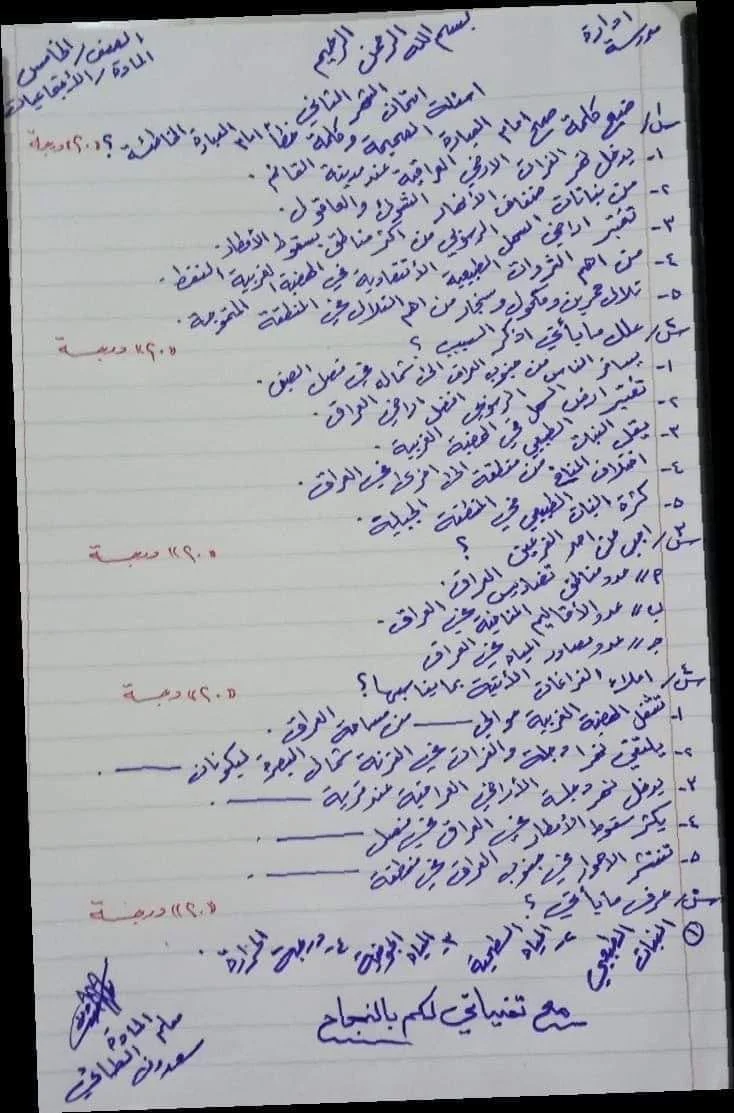 ادارة
مدرسة
بسم الله الرحمن الرحيم
الصف/الخامس
المادة/الأجتماعيات
اسئلة امتحان الشهر الثاني
س١/ ضع كلمة صح امام العبارة الصحيحة وكلمة خطأ امام العبارة الخاطئة ؟ (٢٠) درجة
١- يدخل نهر الفرات الاراضي العراقية عند مدينة القائم .
٢- من نباتات ضفاف الأنهار الشوك والعاقول .
٣- تعتبر اراضي السهل الرسوبي من اكثر مناطق سقوط الأمطار .
٤- من اهم الثروات الطبيعية الأقتصادية في الهضبة الغربية النفط .
٥- تلال حمرين ومكحول وسنجار من اهم التلال في المنطقة المتموجة .
س٢/ علل ما يأتي اذكر السبب ؟ (٢٠) درجة
١- يسافر الناس من جنوب العراق الى شماله في فصل الصيف .
٢- تعتبر ارض السهل الرسوبي افضل اراضي العراق .
٣- يقل النبات الطبيعي في الهضبة الغربية .
٤- اختلاف المناخ من منطقة الى اخرى في العراق .
٥- كثرة النبات الطبيعي في المنطقة الجبلية .
س٣/ اجب عن احد الفرعين ؟ (٢٠) درجة
أ// عدد مناطق تضاريس العراق .
ب// عدد الأقاليم المناخية في العراق .
ج// عدد مصادر المياه في العراق
س٤/ املاء الفراغات الأتية بما يناسبها ؟ (٢٠) درجة
١- تشغل الهضبة الغربية حوالي ـــــ من مساحة العراق .
٢- يلتقي نهرا دجلة والفرات في القرنة شمال البصرة ليكونان ـــــ .
٣- يدخل نهر دجلة الأراضي العراقية عند قرية ـــــ .
٤- يكثر سقوط الأمطار في العراق في فصل ـــــ .
٥- تنتشر الاهوار في جنوب العراق في منطقة ـــــ .
س٥/ عرف ما يأتي ؟ (٢٠) درجة
١ النبات الطبيعي ٢- المياه السطحية ٣- المياه الجوفية ٤- درجة الحرارة .
مع تمنياتي لكم بالنجاح
معلم المادة
سعدون الطائي